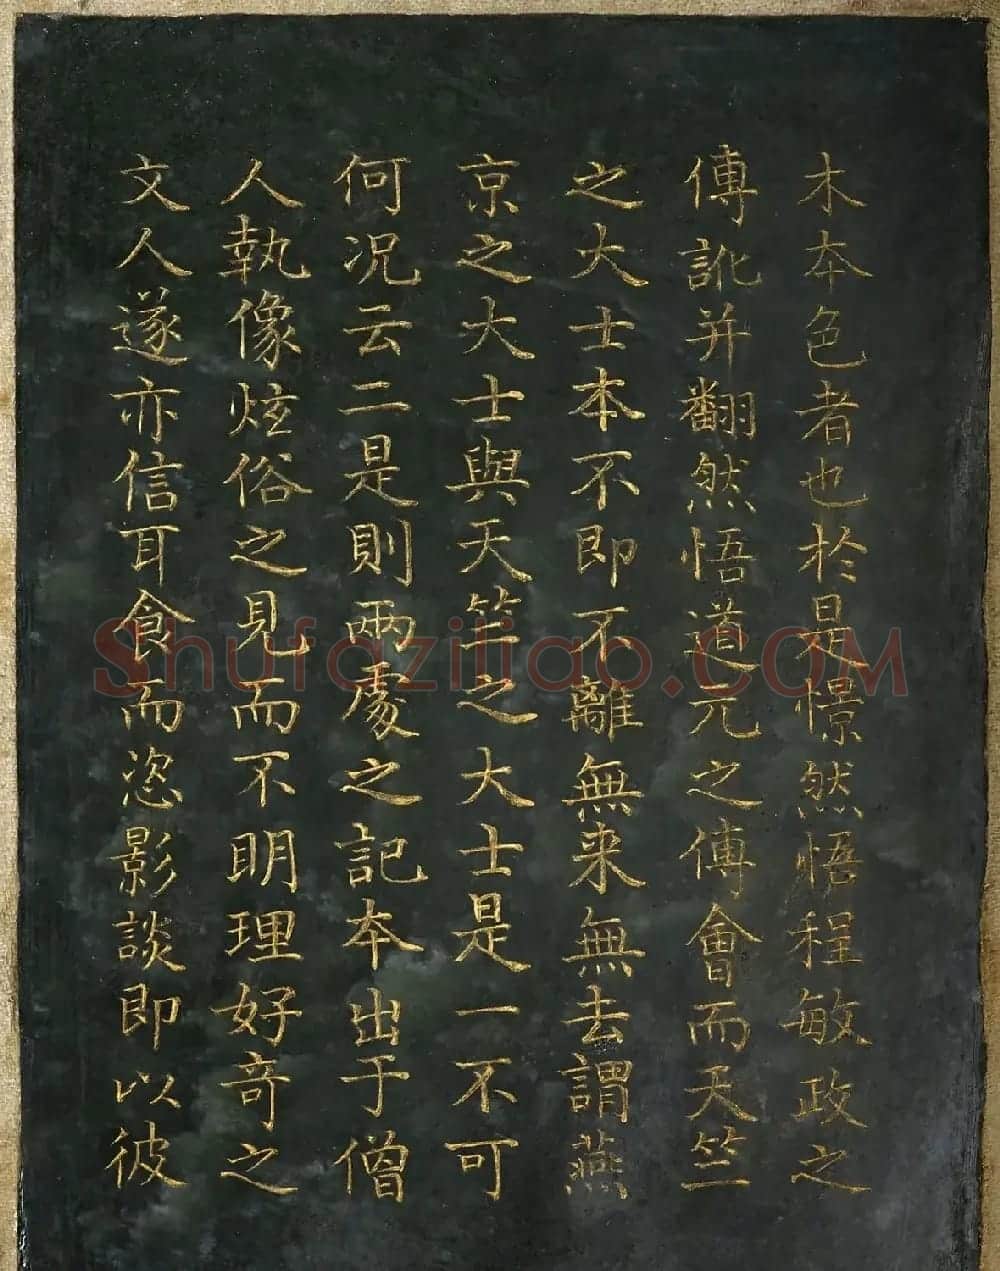 木本色者也於是憬然悟程敏政之
傳訛并翻然悟道元之傅會而天竺
之大士本不即不離無来無去謂燕
京之大士與天竺之大士是一不可
何况云二是則兩處之記本出于僧
人執像炫俗之見而不明理好奇之
文人遂亦信耳食而恣影談即以彼
Shufaziliao.COM